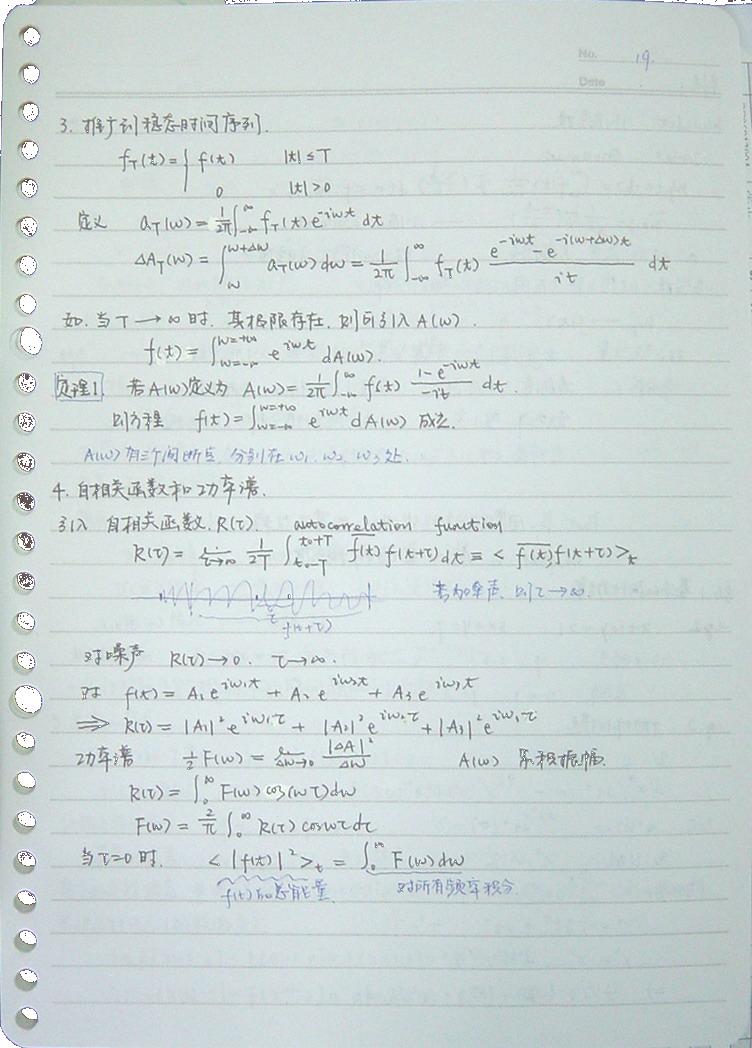 No. 19
Date
3. 推广到稳态时间序列.
f_T(t) = { f(t) |t| ≤ T
0 |t| > 0
定义 a_T(ω) = 1/2π ∫_{-∞}^{∞} f_T(t) e^{-iωt} dt
ΔA_T(ω) = ∫_ω^{ω+Δω} a_T(ω) dω = 1/2π ∫_{-∞}^{∞} f_T(t) (e^{-iωt} - e^{-i(ω+Δω)t})/(it) dt
如. 当 T → ∞ 时. 其极限存在. 则可引入 A(ω).
f(t) = ∫_{ω=-∞}^{ω=+∞} e^{iωt} dA(ω).
定理1 若A(ω)定义为 A(ω) = 1/2π ∫_{-∞}^{∞} f(t) (1-e^{-iωt})/(-it) dt.
则方程 f(t) = ∫_{ω=-∞}^{ω=+∞} e^{iωt} dA(ω) 成立.
A(ω)有三个间断点, 分别在 ω₁. ω₂. ω₃ 处.
4. 自相关函数和功率谱.
引入 自相关函数. R(τ). autocorrelation function
R(τ) = 1/2T ∫_{t₀-T}^{t₀+T} \overline{f(t)} f(t+τ) dt ≡ < \overline{f(t)} f(t+τ) >_t
若为噪声, 则 τ → ∞.
τ
f(t+τ)
对噪声 R(τ) → 0. τ → ∞.
对 f(t) = A₁ e^{iω₁t} + A₂ e^{iω₂t} + A₃ e^{iω₃t}
⇒ R(τ) = |A₁|² e^{iω₁τ} + |A₂|² e^{iω₂τ} + |A₃|² e^{iω₃τ}
功率谱 ½ F(ω) = |ΔA|²/Δω A(ω) 累积振幅.
R(τ) = ∫₀^∞ F(ω) cos(ωτ) dω
F(ω) = 2/π ∫₀^∞ R(τ) cosωτ dτ
当τ=0时. < |f(t)|² >_t = ∫₀^∞ F(ω) dω
f(t)的总能量. 对所有频率积分.